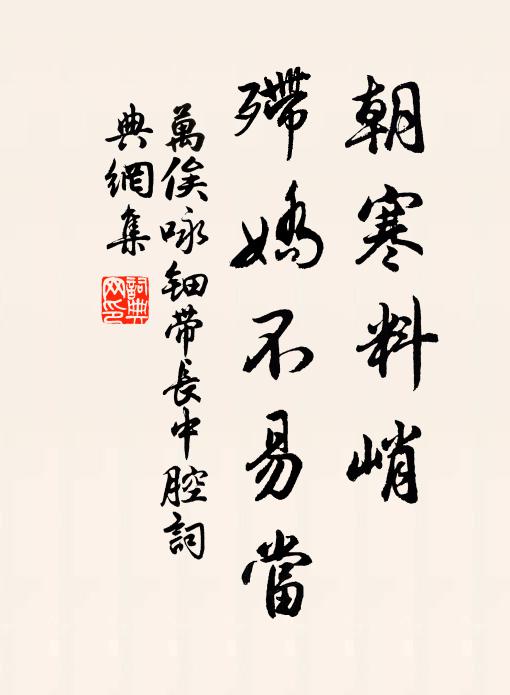 朝寒料峭
殢嬌不易當
萬俟咏鈿帶長中腔詞
典網集
詞典网印